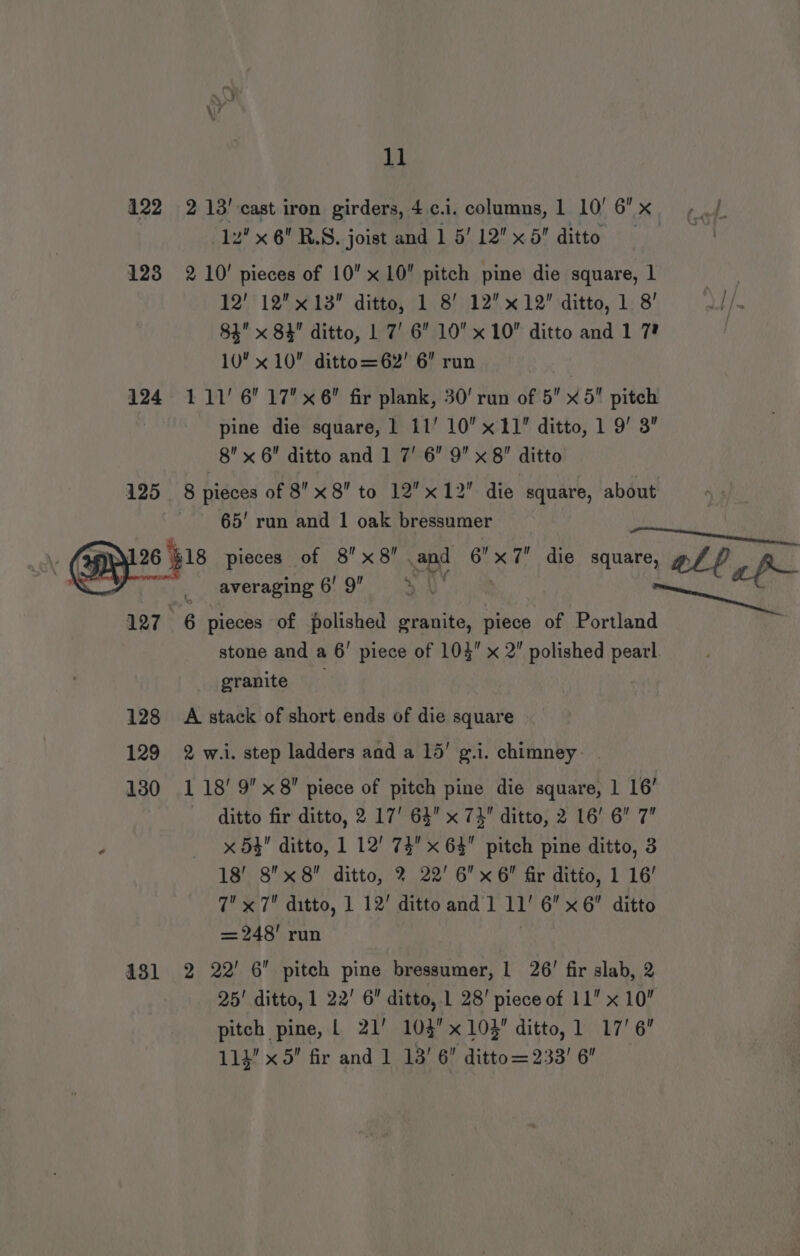 11
122 2 13' cast iron girders, 4 c.i. columns, 1 10' 6" x
12" x 6" R.S. joist and 1 5' 12" x 5" ditto
123 2 10' pieces of 10" x 10" pitch pine die square, 1
12' 12" x 13" ditto, 1 8' 12" x 12" ditto, 1 8'
8½" x 8½" ditto, 1 7' 6" 10" x 10" ditto and 1 7'
10" x 10" ditto=62' 6" run
124 1 11' 6" 17" x 6" fir plank, 30' run of 5" x 5" pitch
pine die square, 1 11' 10" x 11" ditto, 1 9' 3"
8" x 6" ditto and 1 7' 6" 9" x 8" ditto
125 8 pieces of 8" x 8" to 12" x 12" die square, about
65' run and 1 oak bressumer
126 18 pieces of 8" x 8" and 6" x 7" die square,
averaging 6' 9"
127 6 pieces of polished granite, piece of Portland
stone and a 6' piece of 10½" x 2" polished pearl
granite
128 A stack of short ends of die square
129 2 w.i. step ladders and a 15' g.i. chimney
130 1 18' 9" x 8" piece of pitch pine die square, 1 16'
ditto fir ditto, 2 17' 6½" x 7½" ditto, 2 16' 6" 7"
x 5½" ditto, 1 12' 7½" x 6½" pitch pine ditto, 3
18' 8" x 8" ditto, 2 22' 6" x 6" fir ditto, 1 16'
7" x 7" ditto, 1 12' ditto and 1 11' 6" x 6" ditto
=248' run
131 2 22' 6" pitch pine bressumer, 1 26' fir slab, 2
25' ditto, 1 22' 6" ditto, 1 28' piece of 11" x 10"
pitch pine, 1 21' 10½" x 10½" ditto, 1 17' 6"
11½" x 5" fir and 1 13' 6" ditto=233' 6"